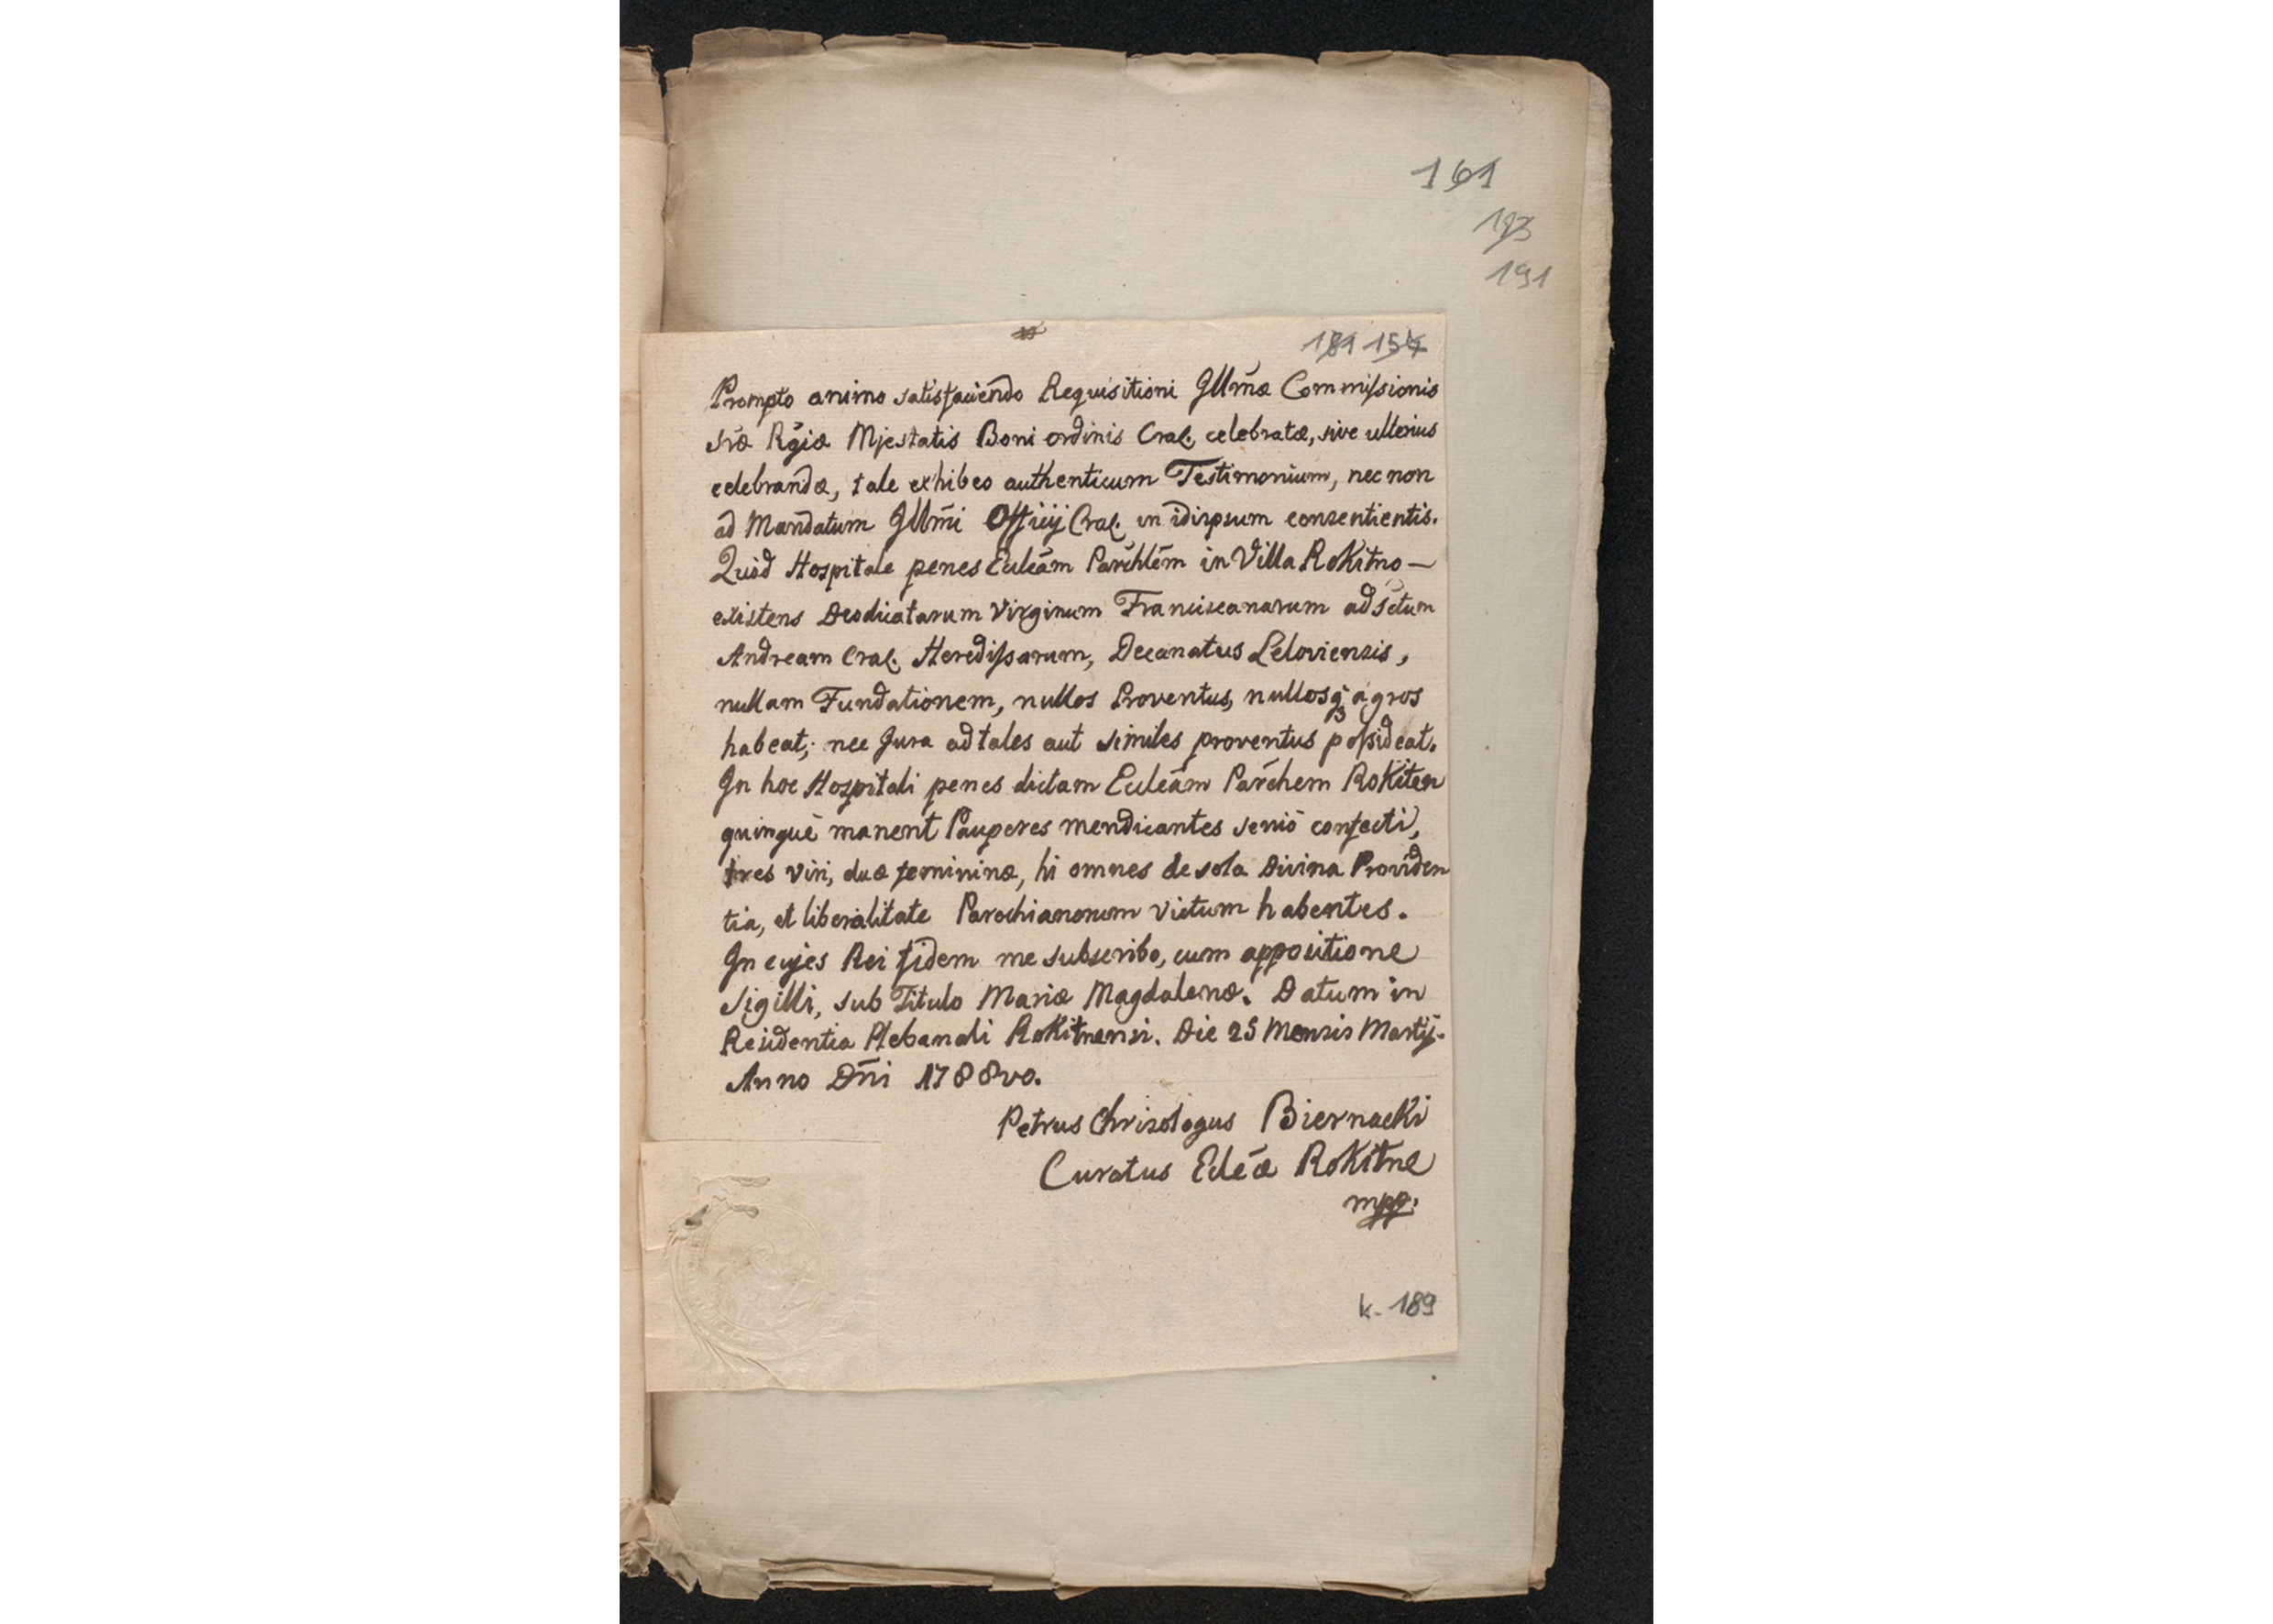 161
193
191
181 154
Prompto animo satisfaciendo Requisitioni Illmæ Commissionis
Sræ Rgiæ Mjestatis Boni ordinis Crac. celebratæ, sive ulterius
celebrandæ, tale exhibeo authenticum Testimonium, nec non
ad Mandatum Illmi Officij Crac. in idipsum consentientis.
Quod Hospitale penes Ecleam Parchlem in Villa Rokitno —
existens Deodicatarum Virginum Franciscanarum ad Sctum
Andream Crac. Heredissarum, Decanatus Leloviensis,
nullam Fundationem, nullos Proventus, nullosq3 agros
habeat; nec Jura ad tales aut similes proventus possideat.
In hoc Hospitali penes dictam Ecleam Parchem Rokiten
quinque manent Pauperes mendicantes senio confecti,
tres viri, duæ femininæ, hi omnes de sola Divina Providen
tia, et liberalitate Parochianorum victum habentes.
In cujes Rei fidem me subscribo, cum appositione
Sigilli, sub Titulo Mariæ Magdalenæ. Datum in
Residentia Plebanali Rokitnensi. Die 25 Mensis Martij.
Anno Dni 1788vo.
Petrus Chrisologus Biernacki
Curatus Ecleæ Rokitne
mpp.
k. 189